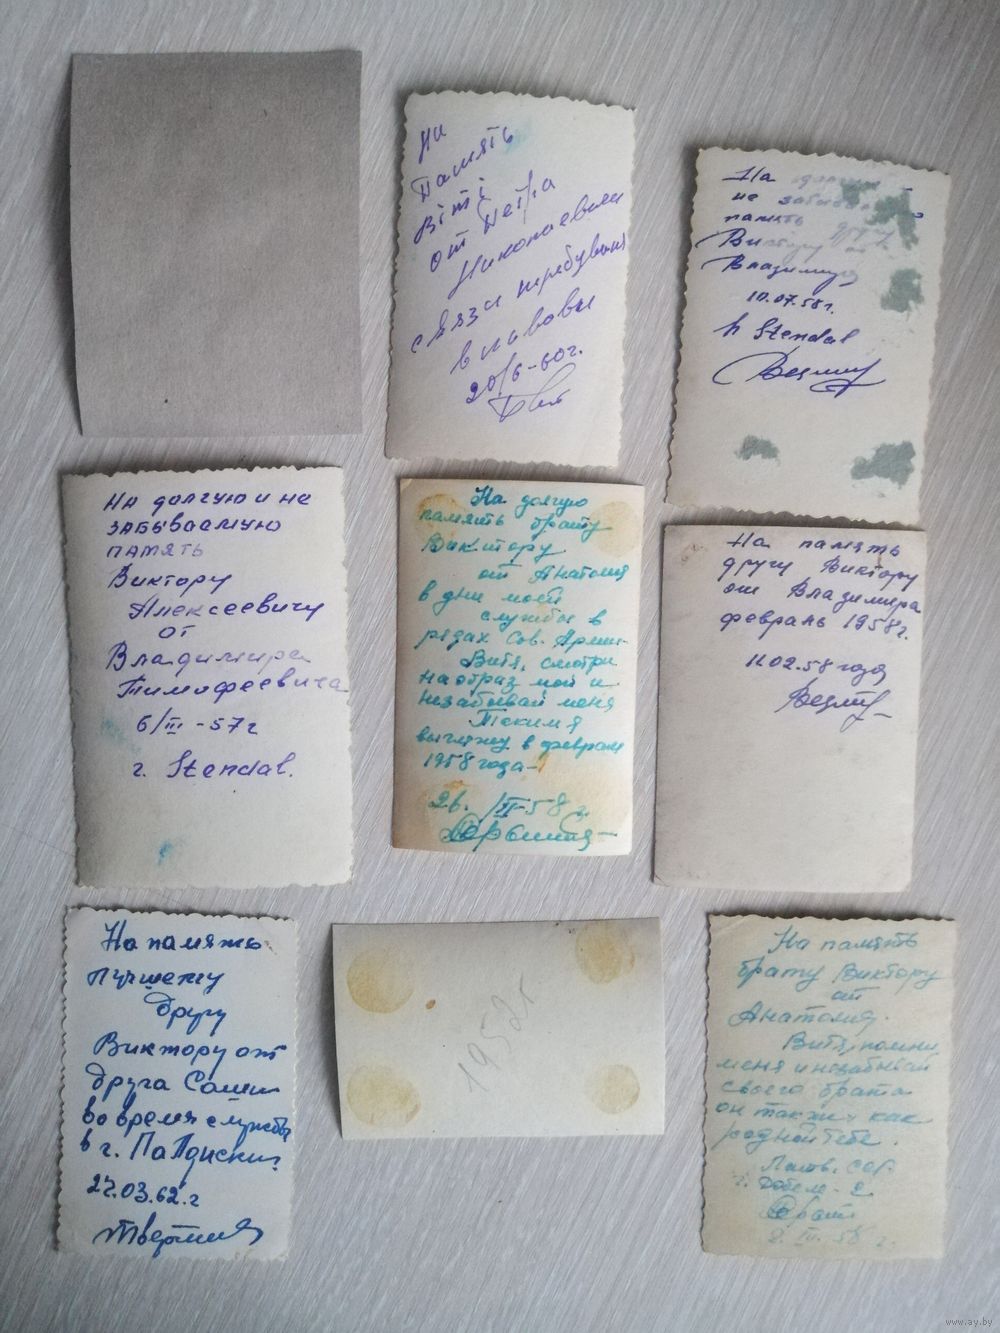 На
Память
Вiтi
от Петра
Николаевича
связи
в
20/6-60г.
На
не
память
Виктору от
Владимира
10.07.58г.
h Stendal
На долгую и не
забываамую
память
Виктору
Алексеевичу
от
Владимира
Тимофеевича
6/III-57г
г. Stendal.
На долгую
память брату
Виктору
от Анатолия
в дни моей
службы в
рядах Сов. Армии-
Витя, смотри
на образ мой и
незабывай меня
Таким я
выгляжу в феврале
1958 года-
26. /II-58 г.
На память
другу Виктору
от Владимира
февраль 1958г.
11.02.58 года
На память
лучшему
другу
Виктору от
друга Саши
во время службы
в г. Палдиски
27.03.62.г
1952г
На память
брату Виктору
от
Анатолия.
Витя, помни
меня и незабывай
своего брата
он также как
родной тебе.
Латв. ССР.
г. Добеле-2
Брат
2. IV. 58 г.
www.ay.by